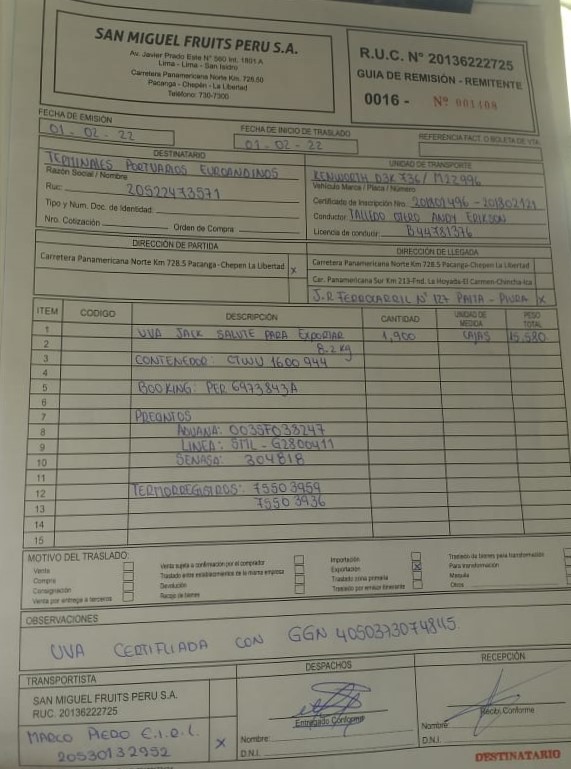 SAN MIGUEL FRUITS PERU S.A.
Av. Javier Prado Este N° 560 Int. 1801 A
Lima - Lima - San Isidro
Carretera Panamericana Norte Km. 728.50
Pacanga - Chepén - La Libertad
Teléfono: 730-7300
R.U.C. N° 20136222725
GUIA DE REMISIÓN - REMITENTE
0016 - Nº 001408
FECHA DE EMISIÓN
01 - 02 - 22
FECHA DE INICIO DE TRASLADO
01 - 02 - 22
REFERENCIA FACT. O BOLETA DE VTA.
DESTINATARIO
TERMINALES PORTUARIOS EUROANDINOS
Razón Social / Nombre
Ruc: 20522473571
Tipo y Num. Doc. de Identidad:
Nro. Cotización Orden de Compra
UNIDAD DE TRANSPORTE
KENWORTH D3K 736/ M2Z996
Vehiculo Marca / Placa / Número
Certificado de Inscripción Nro. 201301496 - 201302121
Conductor TALLEDO OTERO ANDY ERIKSON
Licencia de conducir: B44781376
DIRECCIÓN DE PARTIDA
Carretera Panamericana Norte Km 728.5 Pacanga-Chepen La Libertad X
DIRECCIÓN DE LLEGADA
Carretera Panamericana Norte Km 728.5 Pacanga-Chepen La Libertad
Car. Panamericana Sur Km 213-Fnd. La Hoyada-El Carmen-Chincha-Ica
J.R FERROCARRIL N° 127 PAITA - PIURA X
ITEM CODIGO DESCRIPCIÓN CANTIDAD UNIDAD DE MEDIDA PESO TOTAL
1 UVA JACK SALUTE PARA EXPORTAR 1,900 CAJAS 15,580
2 8.2 kg
3 CONTENEDOR: CTWU 1600944
4
5 BOOKING: PER 6973843A
6
7 PRECINTOS
8 ADUANA: 0035F033247
9 LINEA: SML - G2800411
10 SENASA: 304818
11
12 TERMORREGISTROS: 75503959
13 75503936
14
15
MOTIVO DEL TRASLADO:
Venta
Compra
Consignación
Venta por entrega a terceros
Venta sujeta a confirmación por el comprador
Traslado entre establecimientos de la misma empresa
Devolución
Recojo de bienes
Importación
Exportación X
Traslado zona primaria
Traslado por emisor itinerante
Traslado de bienes para transformación
Para transformación
Maquila
Otros
OBSERVACIONES
UVA CERTIFICADA CON GGN 4050373074845
TRANSPORTISTA
SAN MIGUEL FRUITS PERU S.A.
RUC. 20136222725
MARCO PIERO E.I.R.L.
20530132952 X
DESPACHOS
Entregado Conforme
Nombre:
D.N.I.
RECEPCIÓN
Recibí Conforme
Nombre:
D.N.I.
DESTINATARIO